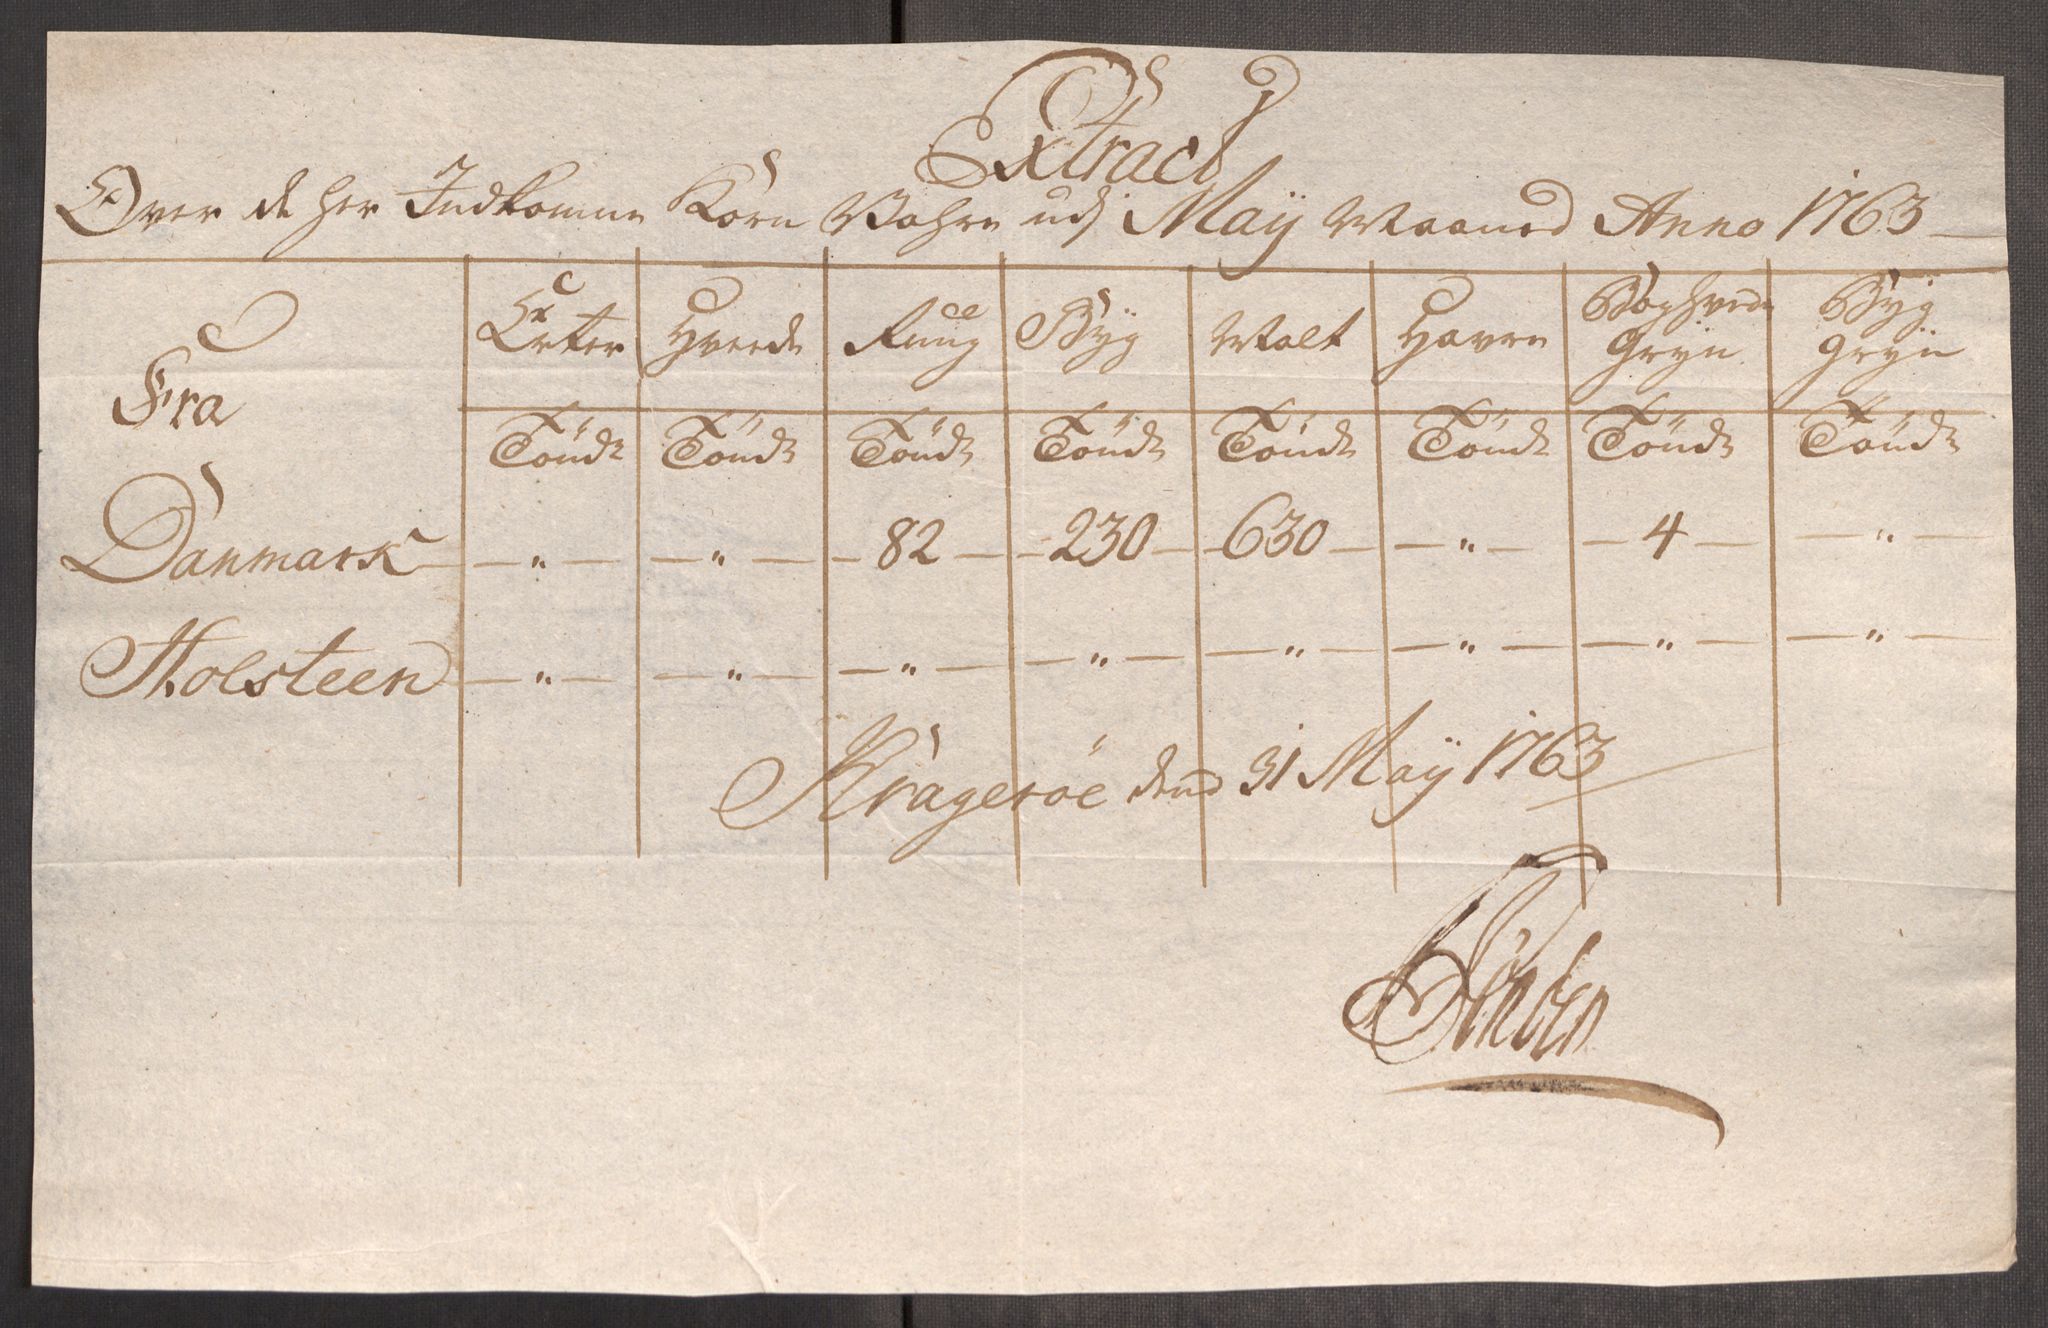 Extract
Over de her Indkomne Korn Vahre udj Maÿ Maaned Anno 1763
Fra
Erter Hveede Rug Bÿg Malt Havre Boghvede Grÿn Bÿg Grÿn
Tönd Tönd Tönd Tönd Tönd Tönd Tönd Tönd
Danmark — " — — " — — 82 — — 230 — — 630 — — " — — 4 — — " —
Holsteen — " — — " — — " — — " — — " — — " — — " — — " —
Kragerøe dend 31 Maÿ 1763